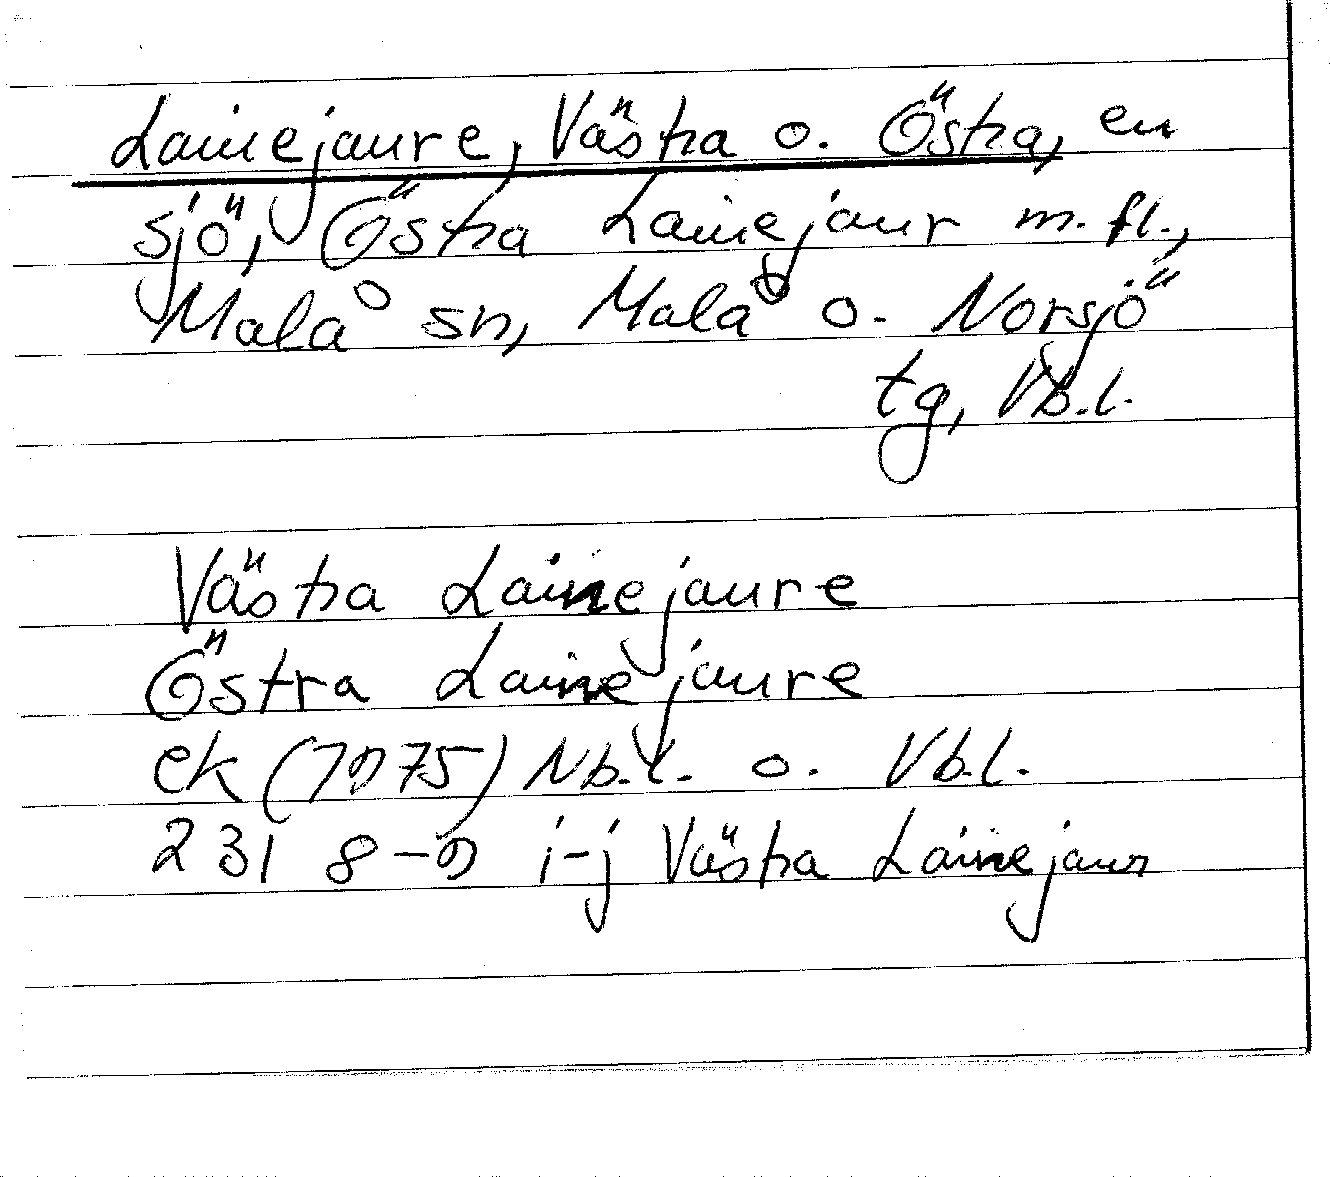 Lainejaure, Västra o. Östra, en
sjö, Östra Lainejaur m. fl.,
Malå sn, Malå o. Norsjö
tg, Vb.l.
Västra Lainejaure
Östra Lainejaure
ek (1975) Nb.l. o. Vb.l.
231 8-9 i-j Västra Lainejaur